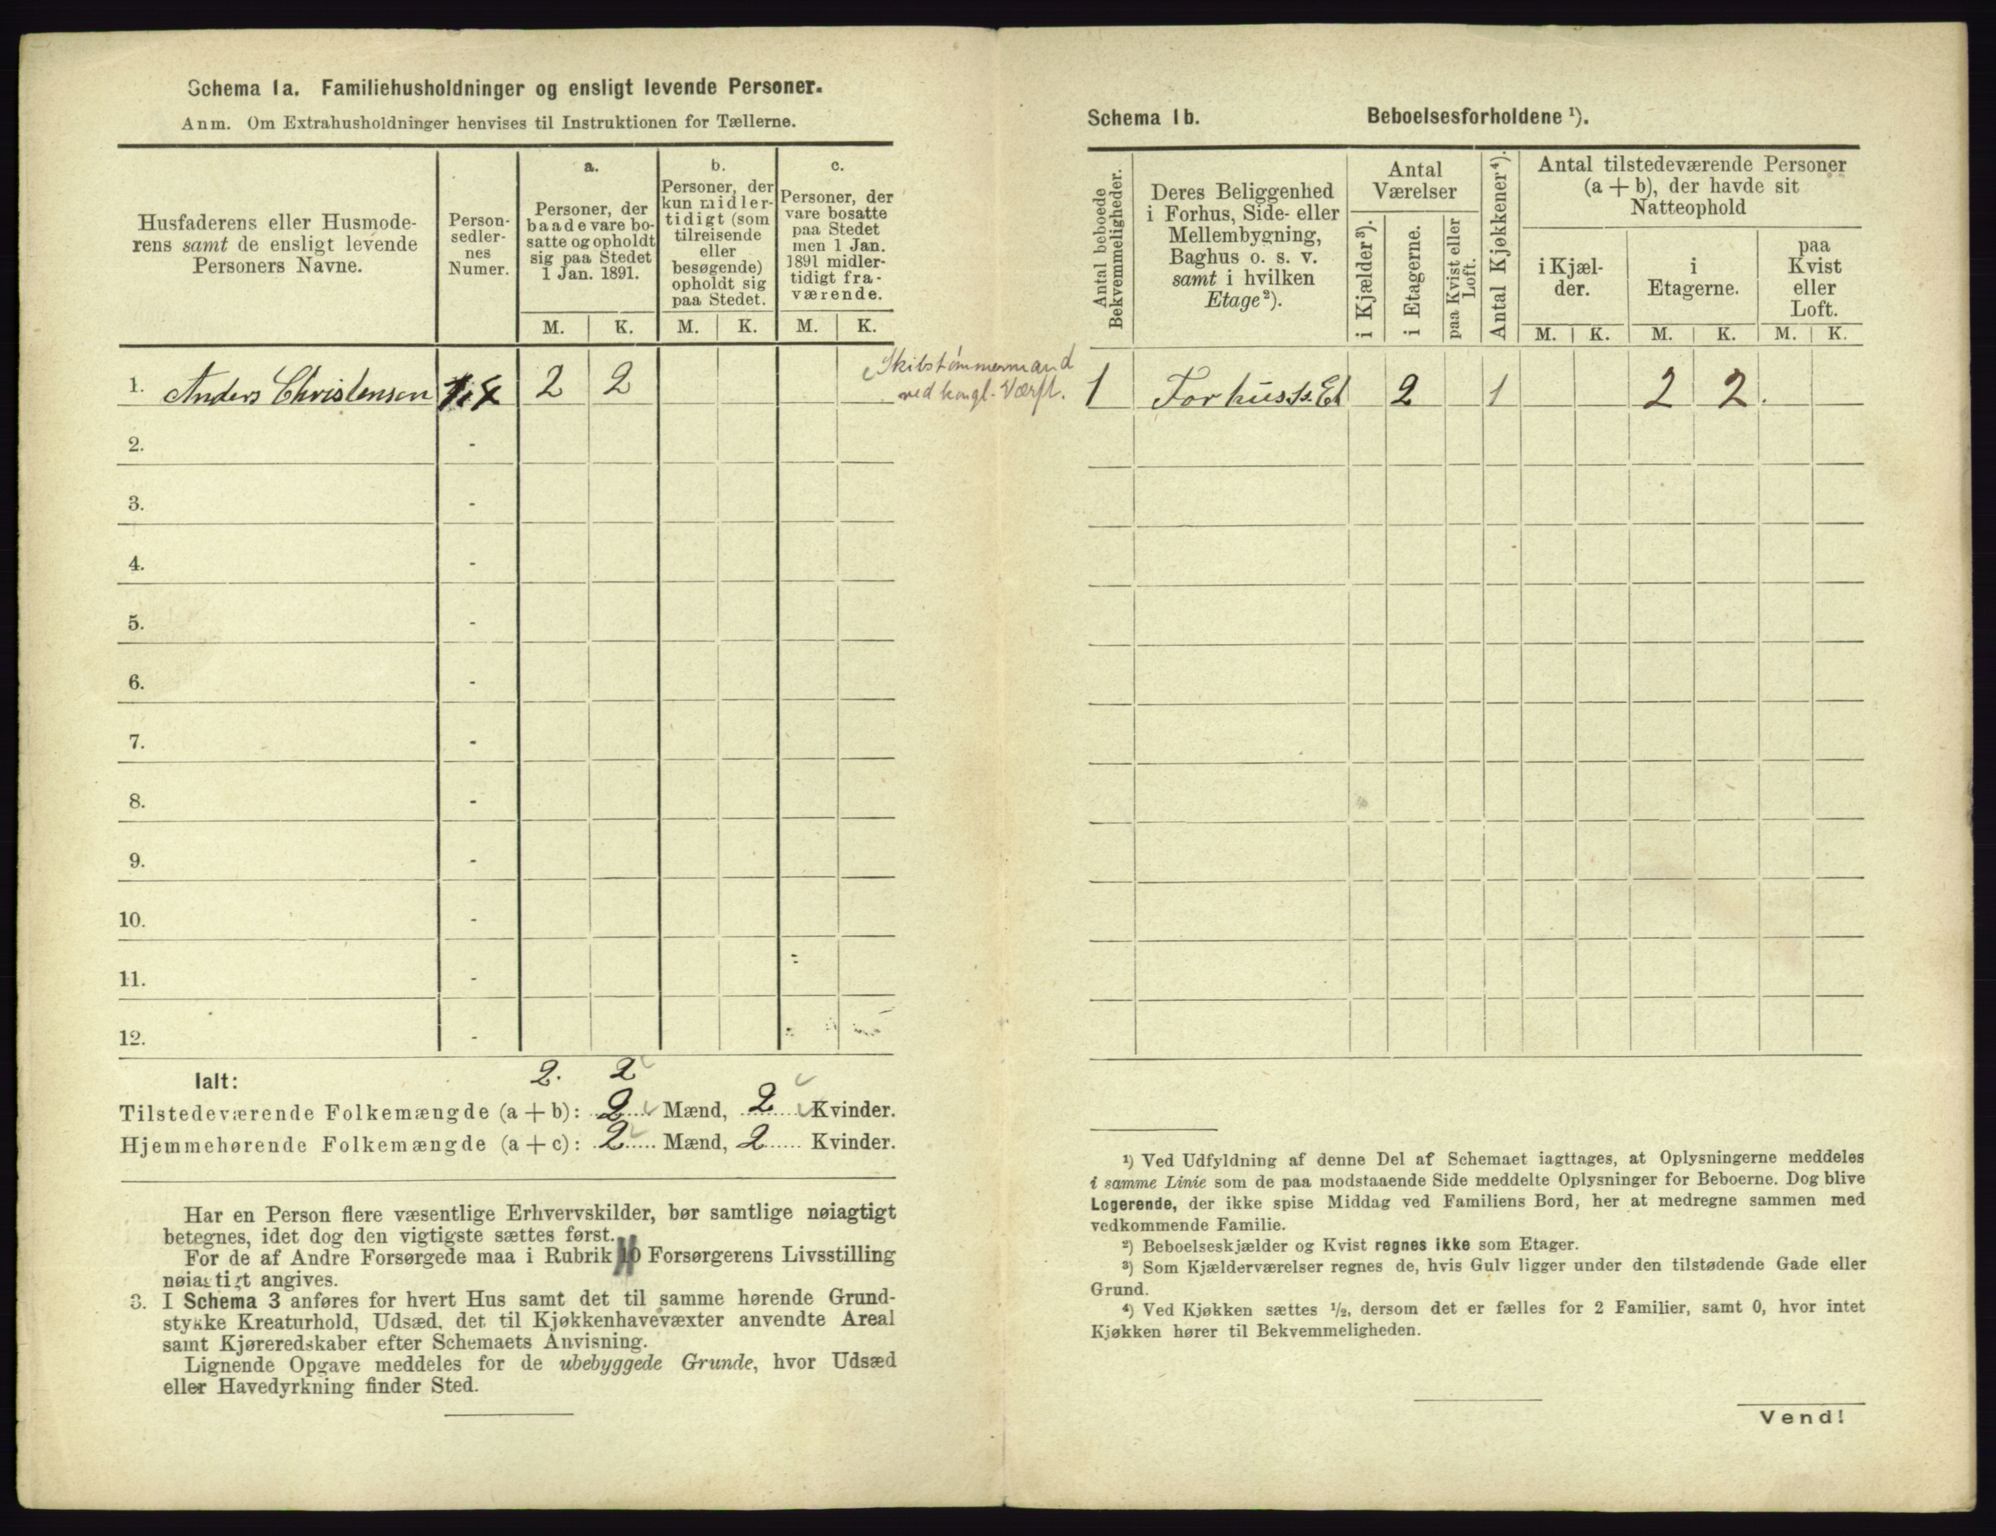 Schema 1a. Familiehusholdninger og ensligt levende Personer.
Anm. Om Extrahusholdninger henvises til Instruktionen for Tællerne.
Husfaderens eller Husmoderens samt de ensligt levende Personers Navne.
Personsedlernes Numer.
a.
Personer, der baade vare bosatte og opholdt sig paa Stedet 1 Jan. 1891.
b.
Personer, der kun midlertidigt (som tilreisende eller besøgende) opholdt sig paa Stedet.
c.
Personer, der vare bosatte paa Stedet men 1 Jan. 1891 midlertidigt fraværende.
M. K. M. K. M. K.
1. Anders Christensen 1-4 2 2
Skibstømmermand
ved kongl. Værft.
2. -
3. -
4. -
5. -
6. -
7. -
8. -
9. -
10. -
11. -
12. -
Ialt: 2. 2
Tilstedeværende Folkemængde (a + b): 2 Mænd, 2 Kvinder.
Hjemmehørende Folkemængde (a + c): 2 Mænd, 2 Kvinder.
Har en Person flere væsentlige Erhvervskilder, bør samtlige nøiagtigt
betegnes, idet dog den vigtigste sættes først.
For de af Andre Forsørgede maa i Rubrik Forsørgerens Livsstilling
nøiagtigt angives.
3. I Schema 3 anføres for hvert Hus samt det til samme hørende Grund-
stykke Kreaturhold, Udsæd, det til Kjøkkenhavevæxter anvendte Areal
samt Kjøreredskaber efter Schemaets Anvisning.
Lignende Opgave meddeles for de ubebyggede Grunde, hvor Udsæd
eller Havedyrkning finder Sted.
Schema 1b. Beboelsesforholdene ¹).
Antal beboede Bekvemmeligheder.
Deres Beliggenhed i Forhus, Side- eller Mellembygning, Baghus o. s. v. samt i hvilken Etage²).
Antal Værelser
i Kjælder³).
i Etagerne.
paa Kvist eller Loft.
Antal Kjøkkener⁴).
Antal tilstedeværende Personer (a + b), der havde sit Natteophold
i Kjælder.
i Etagerne.
paa Kvist eller Loft.
M. K. M. K. M. K.
1 Forhus 1s. Et 2 1 2 2.
¹) Ved Udfyldning af denne Del af Schemaet iagttages, at Oplysningerne meddeles
i samme Linie som de paa modstaaende Side meddelte Oplysninger for Beboerne. Dog blive
Logerende, der ikke spise Middag ved Familiens Bord, her at medregne sammen med
vedkommende Familie.
²) Beboelseskjælder og Kvist regnes ikke som Etager.
³) Som Kjælderværelser regnes de, hvis Gulv ligger under den tilstødende Gade eller
Grund.
⁴) Ved Kjøkken sættes ½, dersom det er fælles for 2 Familier, samt 0, hvor intet
Kjøkken hører til Bekvemmeligheden.
Vend!